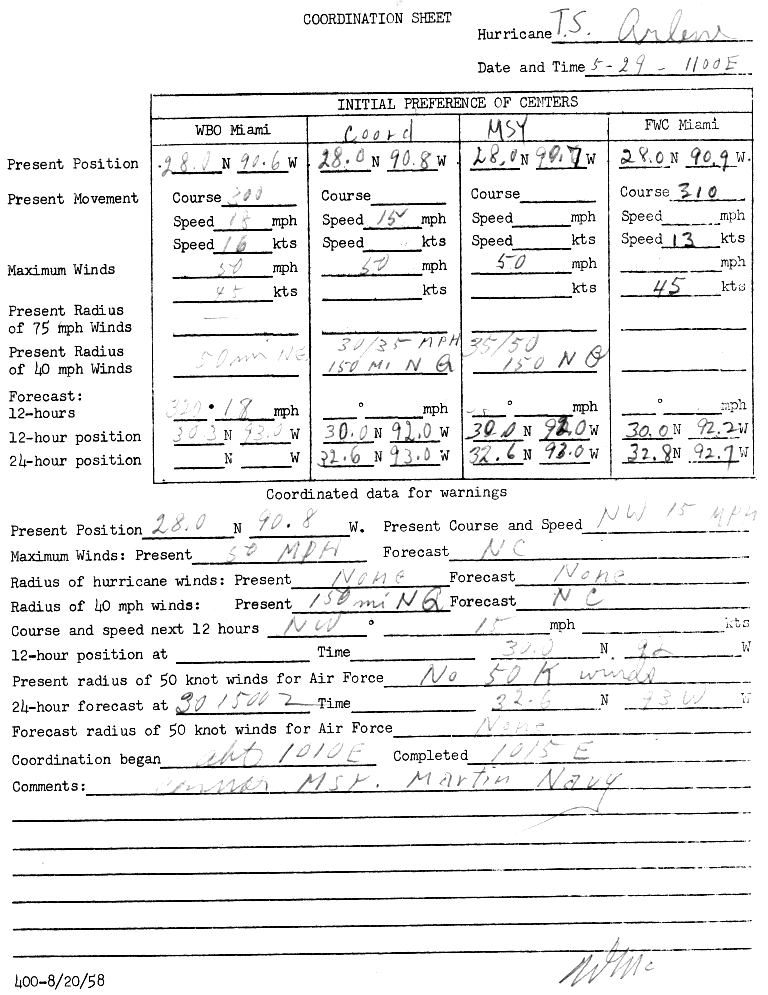 COORDINATION SHEET
Hurricane T.S. Arlene
Date and Time 5-29 - 1100E
INITIAL PREFERENCE OF CENTERS
WBO Miami Coord MSY FWC Miami
Present Position 28.0 N 90.6 W 28.0 N 90.8 W 28.0 N 90.7 W 28.0 N 90.9 W.
Present Movement Course 300 Course Course Course 310
Speed 18 mph Speed 15 mph Speed mph Speed mph
Speed 16 kts Speed kts Speed kts Speed 13 kts
Maximum Winds 50 mph 50 mph 50 mph mph
45 kts kts kts 45 kts
Present Radius
of 75 mph Winds —
Present Radius 30/35 MPH 35/50
of 40 mph Winds 50 mi NE 150 MI N Q 150 N Q
Forecast:
12-hours 320 ° 18 mph ° mph ° mph ° mph
12-hour position 30.3 N 93.0 W 30.0 N 92.0 W 30.0 N 92.0 W 30.0 N 92.2 W
24-hour position N W 32.6 N 93.0 W 32.6 N 93.0 W 32.8 N 92.7 W
Coordinated data for warnings
Present Position 28.0 N 90.8 W. Present Course and Speed NW 15 MPH
Maximum Winds: Present 50 MPH Forecast NC
Radius of hurricane winds: Present None Forecast None
Radius of 40 mph winds: Present 150 mi N Q Forecast NC
Course and speed next 12 hours NW ° 15 mph kts
12-hour position at Time 30.0 N 92 W
Present radius of 50 knot winds for Air Force No 50 K winds
24-hour forecast at 30 1500 Z Time 32.6 N 93 W W
Forecast radius of 50 knot winds for Air Force None
Coordination began abt 1010 E Completed 1015 E
Comments: Connor MSY. Martin Navy
400-8/20/58